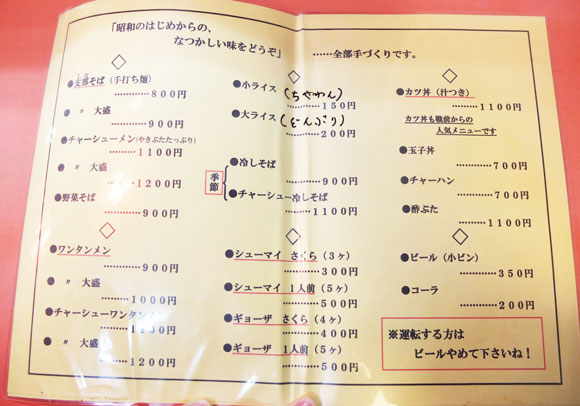 「昭和のはじめからの、
なつかしい味をどうぞ」
……全部手づくりです。
◇
●支那そば(手打ち麺)
しな
…………800円
● 〃 大盛
…………900円
●チャーシューメン(やきぶたたっぷり)
…………1100円
● 〃 大盛
…………1200円
●野菜そば
…………900円
◇
●ワンタンメン
…………900円
● 〃 大盛
…………1000円
●チャーシューワンタンメン
…………1100円
● 〃 大盛
…………1200円
◇
●小ライス (ちゃわん)
…………150円
●大ライス (どんぶり)
…………200円
季節
●冷しそば
…………900円
●チャーシュー冷しそば
…………1100円
◇
●シューマイ さくら(3ヶ)
…………300円
●シューマイ 1人前(5ヶ)
…………500円
●ギョーザ さくら(4ヶ)
…………400円
●ギョーザ 1人前(5ヶ)
…………500円
◇
●カツ丼(汁つき)
…………1100円
カツ丼も戦前からの
人気メニューです
●玉子丼
…………700円
●チャーハン
…………700円
●酢ぶた
…………1100円
◇
●ビール(小ビン)
…………350円
●コーラ
…………200円
※運転する方は
ビールやめて下さいね!